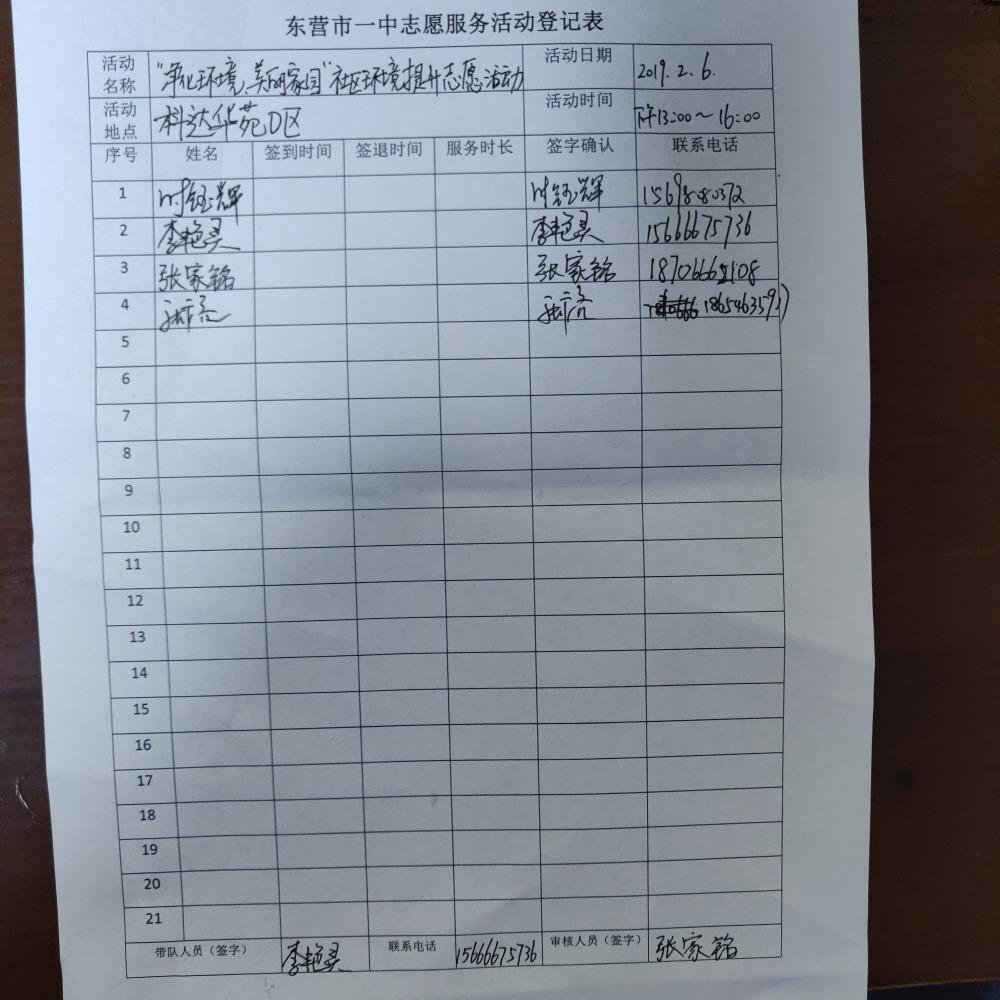 东营市一中志愿服务活动登记表
活动名称 "净化环境,美丽家园"社区环境提升志愿活动 活动日期 2019.2.6.
活动地点 科达华苑D区 活动时间 下午13:00～16:00
序号 姓名 签到时间 签退时间 服务时长 签字确认 联系电话
1 时钰辉 时钰辉
2 李艳灵 李艳灵 15666675736
3 张家铭 张家铭
4
5
6
7
8
9
10
11
12
13
14
15
16
17
18
19
20
21
带队人员（签字） 李艳灵 联系电话 15666675736 审核人员（签字） 张家铭